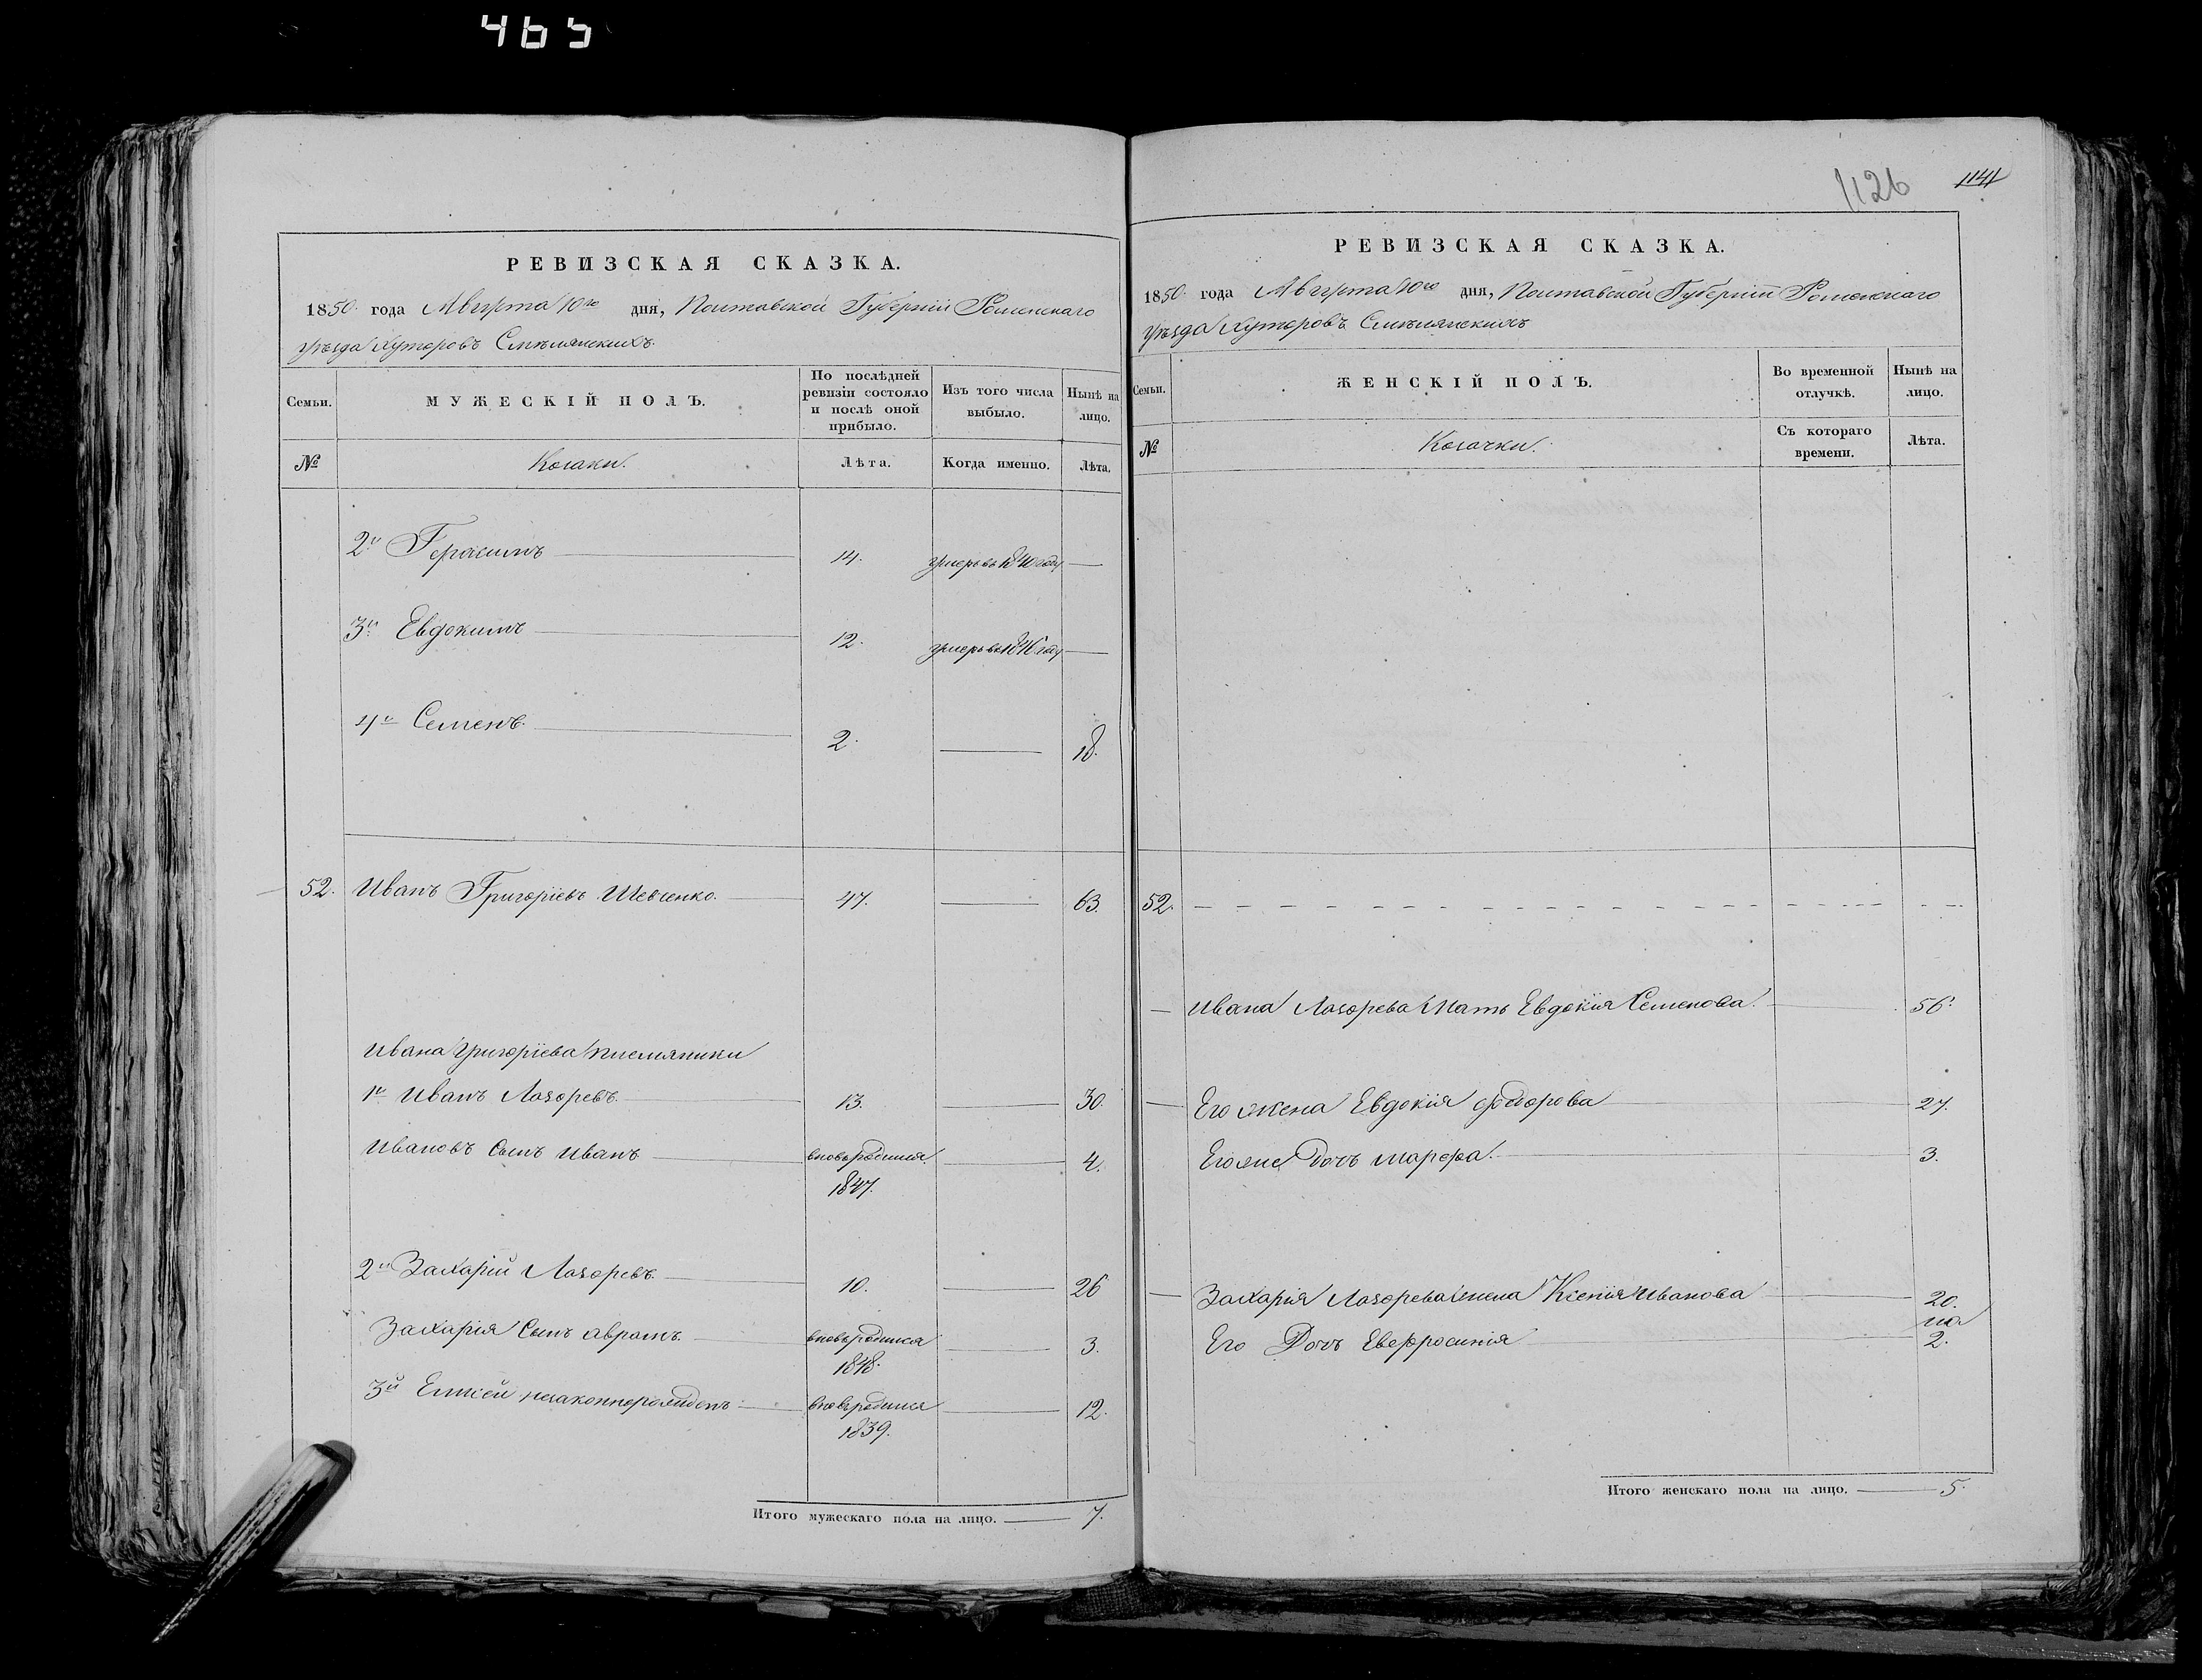 465
1126 1141
РЕВИЗСКАЯ СКАЗКА.
1850. года Августа 10го дня, Полтавской Губерніи Роменскаго
уѣзда Хуторовъ Смѣлянскихъ.
Семьи. МУЖЕСКІЙ ПОЛЪ. По послѣдней ревизіи состояло и послѣ оной прибыло. Изъ того числа выбыло. Нынѣ на лицо.
№ Козаки. Лѣта. Когда именно. Лѣта.
2й Герасимъ 14. умеръ въ 1840 году
3й Евдокимъ 12. умеръ въ 1846 году
4й Семенъ. 2. 18.
52. Иванъ Григоріевъ Шевченко. 47. 63.
Ивана Григоріева племяники
1й Иванъ Лазоревъ. 13. 30.
Ивановъ сынъ Иванъ вновьродился 4.
1847.
2й Захарій Лазоревъ. 10. 26
Захарія сынъ Аврамъ. вновьродился 3.
1848.
3й незаконнорожденъ вновьродился 12.
1839.
Итого мужескаго пола на лицо. 7.
РЕВИЗСКАЯ СКАЗКА.
1850. года Августа 10го дня, Полтавской Губерніи Роменскаго
уѣзда Хуторовъ Смѣлянскихъ
Семьи. ЖЕНСКІЙ ПОЛЪ. Во временной отлучкѣ. Нынѣ на лицо.
№ Козачки. Съ котораго времени. Лѣта.
52.
Ивана Лазорева мать Евдокія Семенова. 56.
Его жена Евдокія Федорова 27.
Егоже дочь Марфа. 3.
Захарія Лазорева жена Ксенія Иванова 20.
Его Дочь Евфросинія 2.
Итого женскаго пола на лицо. 5.